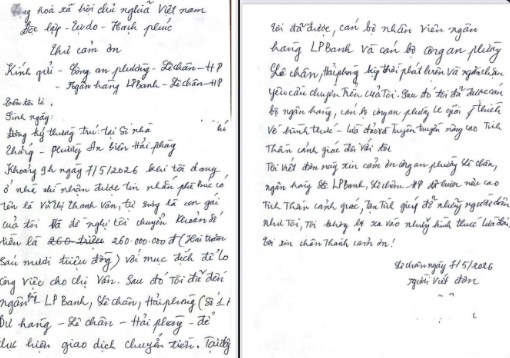 Cộng hoà xã hội chủ nghĩa Việt nam
Độc lập - Tự do - Hạnh phúc
Thư cảm ơn
Kính gửi - Công an phường - Lê chân - HP
- Ngân hàng LPBank - Lê chân - HP
Tên tôi là
Sinh ngày:
Đăng ký thường trú tại Số nhà
thẳng - phường An biên Hải phòng
Khoảng 9h ngày 7/5/2026 khi tôi đang
ở nhà thì nhận được tin nhắn
tên là Vũ Thị Thanh Vân, tự xưng là con gái
của tôi đề nghị tôi chuyển khoản số
tiền là 260 triệu 260.000.000 đ (Hai trăm
Sáu mươi triệu đồng) với mục đích để lo
công việc cho chị Vân. Sau đó Tôi đã đến
ngân hàng LPBank, Lê chân, Hải phòng (Số
Dư hàng - Lê chân - Hải phòng - để
thực hiện giao dịch chuyển tiền. Tại đây
Tôi đã được, cán bộ nhân viên ngân
hàng LPBank và cán bộ công an phường
Lê chân, Hải phòng kịp thời phát hiện và ngăn chặn
yêu cầu chuyển tiền của Tôi. Sau đó tôi đã được cán
bộ ngân hàng, cán bộ công an phường giải thích
về hình thức lừa đảo và tuyên truyền nâng cao tinh
thần cảnh giác đối với tôi
Tôi viết đơn này xin cảm ơn công an phường Lê chân,
ngân hàng LPBank, Lê chân HP nâng cao
tinh thần cảnh giác, giúp đỡ những người dân
như Tôi, Tôi không bị sa vào những hình thức lừa đảo.
Tôi xin chân thành cảm ơn!
Lê chân ngày 7/5/2026
Người viết đơn